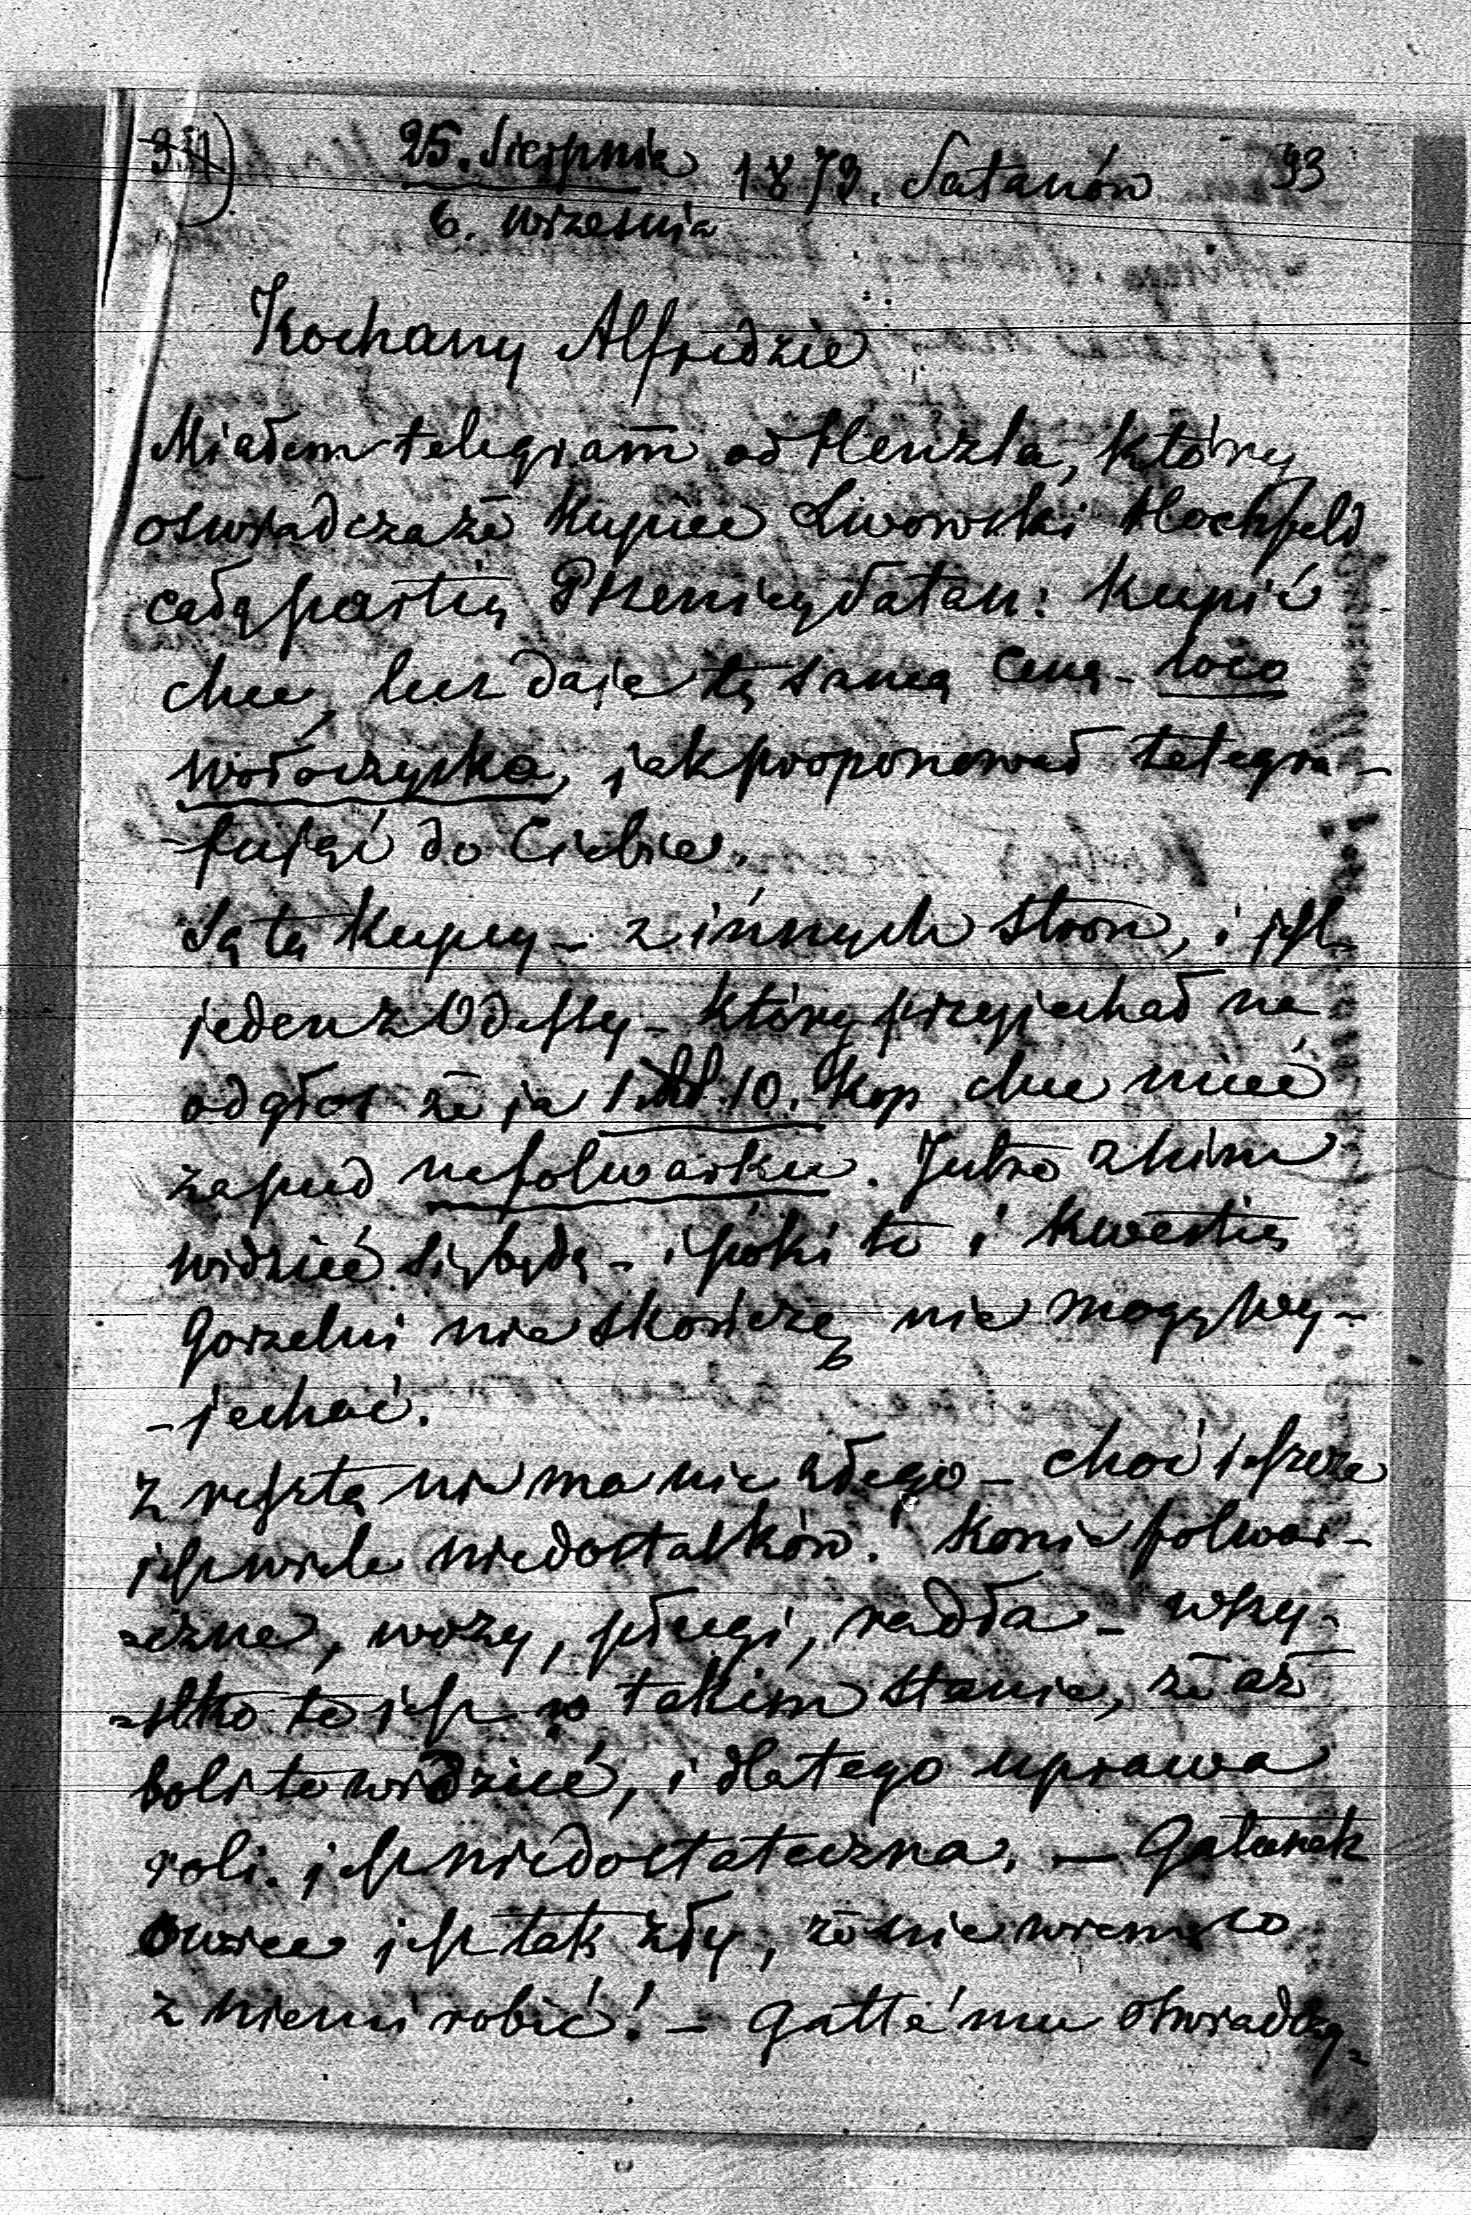 25. Sierpnia 1873. Satanów 93
6. września
Kochany Alfredzie
Miałem telegram od Henzla, który
oswiadcza że Kupiec Lwowski Hochfeld
całą partię Pszenicy Satan: kupić
chce, lecz daje tę samą cenę - loco
Wołoczyska, jak proponował telegra-
-fując do Ciebie.
Są tu kupcy - z innych stron, i jest
jeden z Odessy - który przyjechał na
odgłos że ja 10. kop chce mieć
za pud na folwarku. Jutro z nim
widzieć się będę - i póki to i kwestię
Gorzelni nie skończę nie mogę wy-
-jechać.
Z resztą nie ma nic złego - choć jeszcze
jest wiele niedostatków! Konie folwar-
-czne, wozy, pługi, radła - wszy-
-stko to jest w takim stanie, że aż
boli to widzieć, i dlatego uprawa
roli jest niedostateczna. - Gatunek
owiec jest tak zły, że nie wiem co
z niemi robić! - Gatté'mu oswiadczy-